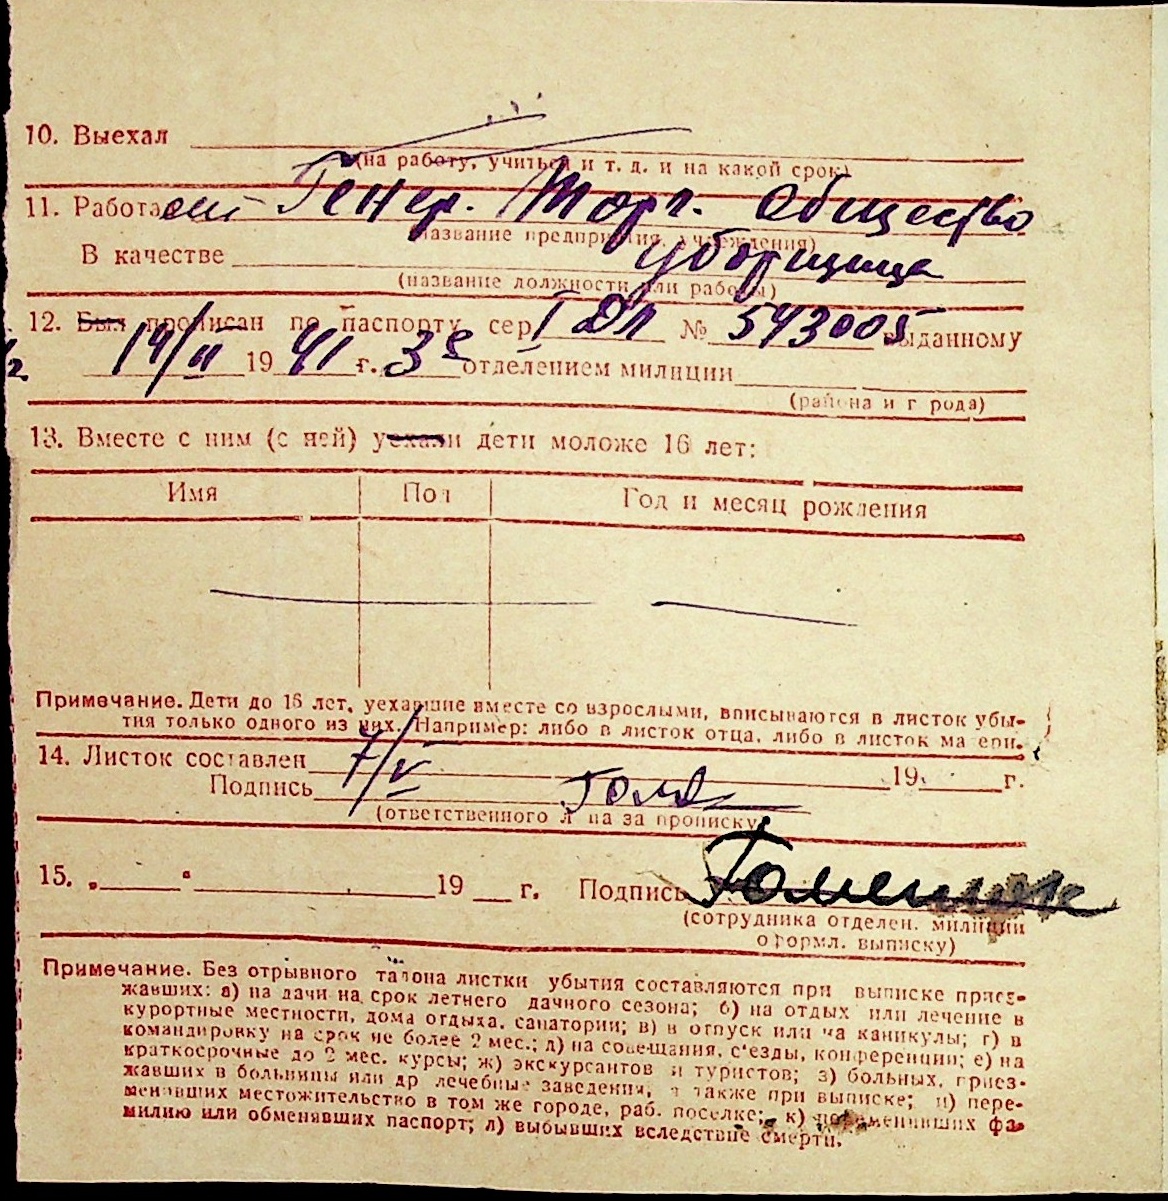 10. Выехал
(на работу, учиться и т. д. и на какой срок)
11. Работает Генер. Торг. Общество
(название предприятия, учреждения)
В качестве уборщица
(название должности или работы)
12. Был прописан по паспорту сер I ДЛ № 543005 выданному
14/II 1941 г. 3е отделением милиции
(района и г рода)
13. Вместе с ним (с ней) уехали дети моложе 16 лет:
Имя Пол Год и месяц рождения
Примечание. Дети до 16 лет, уехавшие вместе со взрослыми, вписываются в листок убы-
тия только одного из них. Например: либо в листок отца, либо в листок ма ери.
14. Листок составлен 7/V 19 г.
Подпись
(ответственного л на за прописку)
15. „ “ 19 г. Подпись
(сотрудника отделен. милиции
оформл. выписку)
Примечание. Без отрывного талона листки убытия составляются при выписке приез-
жавших: а) на дачи на срок летнего дачного сезона; б) на отдых или лечение в
курортные местности, дома отдыха, санатории; в) в отпуск или на каникулы; г) в
командировку на срок не более 2 мес.; д) на совещания, с'езды, конференции; е) на
краткосрочные до 2 мес. курсы; ж) экскурсантов и туристов; з) больных, приез-
жавших в больницы или др лечебные заведения, а также при выписке; и) пере-
менивших местожительство в том же городе, раб. поселке; к) переменивших фа-
милию или обменявших паспорт; л) выбывших вследствие смерти.